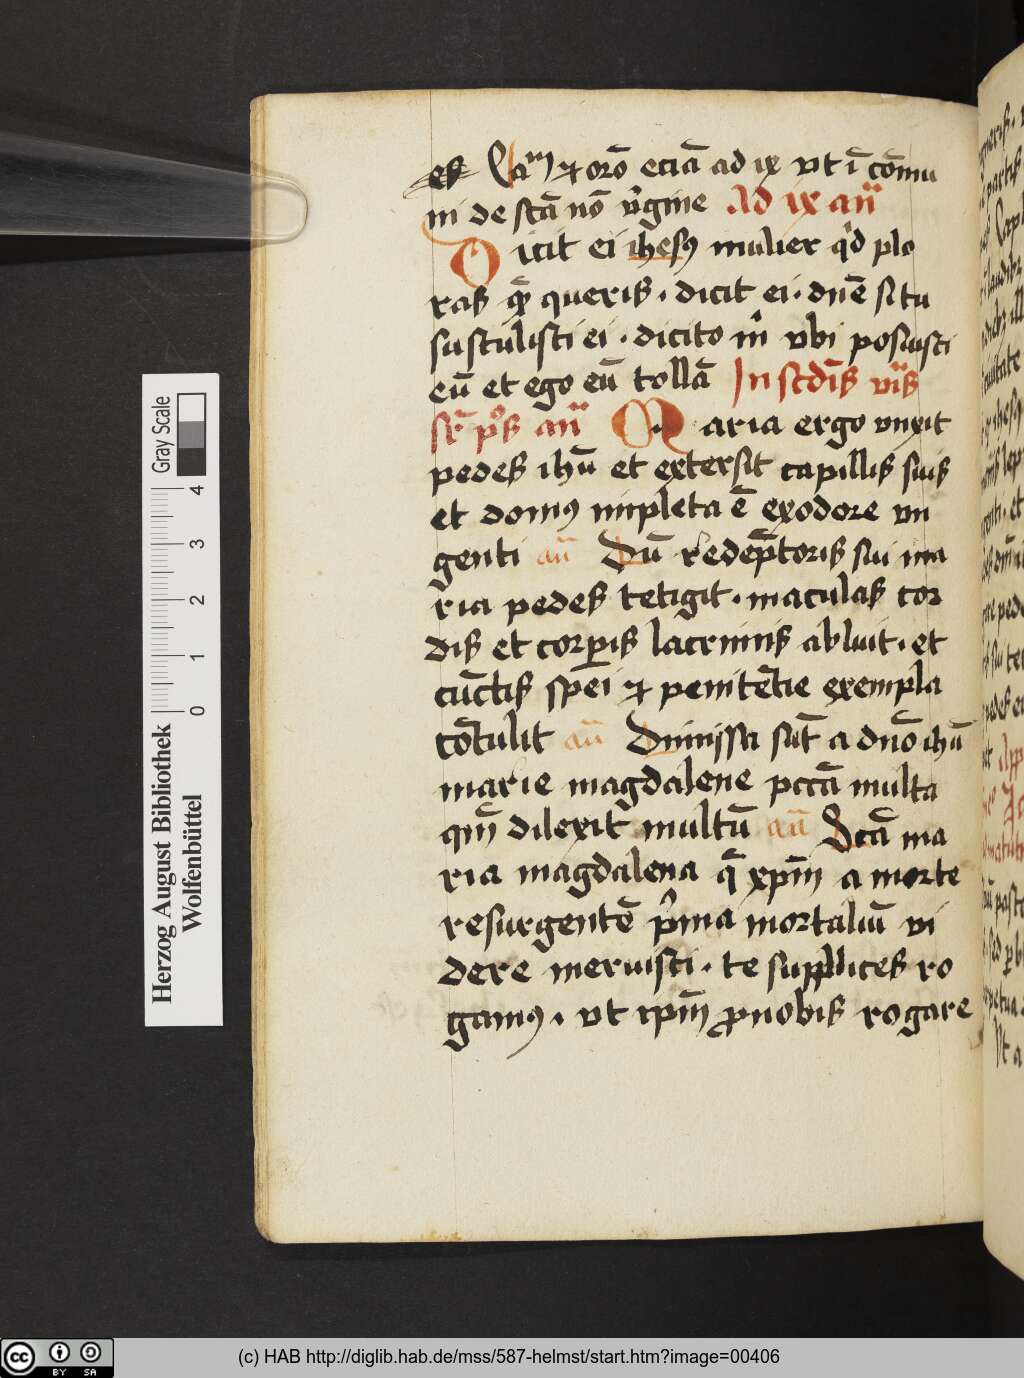 es Cam̄ ⁊ orō eciā ad ix vt ī cōmu
ni de sctā nō v̓gine Ad ix añ
Dicit ei ihesꝰ mulier q̓d plo
ras quē̄ queris · dicit ei · dn̄e si tu
sustulisti ei · dicito m̓ vbi posuisti
eū et ego eū tollā In scd̄is vīs
sr̄ pōs añ Maria ergo vnxit
pedes ihū et extersit capillis suis
et domꝰ impleta ē ex odore vn
genti añ Dū redēptoris sui ma
ria pedes tetigit · maculas cor
dis et corꝑis lacrimis abluit · et
cūctis spei ⁊ penitētie exempla
cōtulit añ Dimissa sūt a dn̄o ihū
marie magdalene pccā multa
qm̄ dilexit multū añ Bēā ma
ria magdalena q̄ xp̄m a morte
resurgentē p̓ma mortaliū vi
dere meruisti · te supplices ro
gamꝰ · vt ip̄m ꝓ nobis rogare
Herzog August Bibliothek
Wolfenbüttel
0 1 2 3 4
Gray Scale
(c) HAB http://diglib.hab.de/mss/587-helmst/start.htm?image=00406
cc BY SA